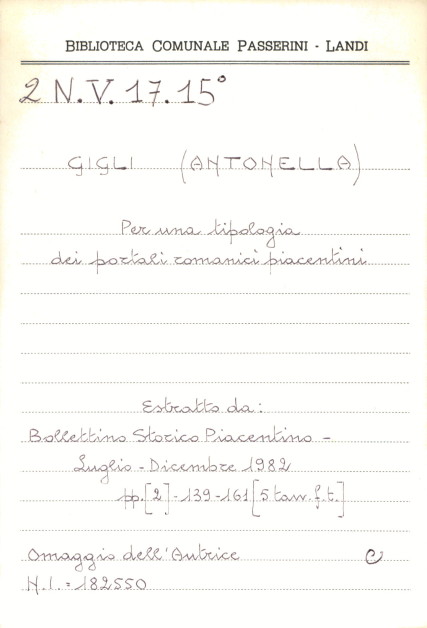 BIBLIOTECA COMUNALE PASSERINI - LANDI
2 N.V. 17.15°
GIGLI (ANTONELLA)
Per una tipologia
dei portali romanici piacentini
Estratto da:
Bollettino Storico Piacentino -
Luglio - Dicembre 1982
pp. [2] - 139 - 161 [5 tavv. f.t.]
Omaggio dell'Autrice e
N.I. = 182550